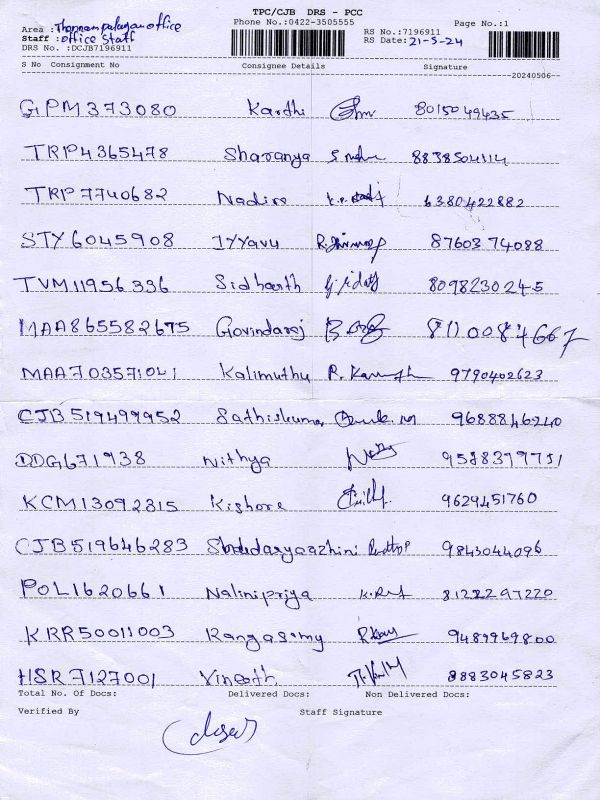 TPC/CJB DRS - PCC
Phone No.:0422-3505555 Page No.:1
Area : Thennampalayam office
Staff : office Staff
DRS No. :DCJB7196911
RS No.:7196911
RS Date: 21-5-24
S No Consignment No Consignee Details Signature
20240506
GPM373080 Karthi 8015049435
TRP4365478 Sharanya 8838504114
TRP7740682 Nadire 6380422882
STY6045908 Iyyavu 8760374088
TVM11956336 Sidharth 8098230245
MAA865582675 Govindaraj 8110084667
MAA703571041 Kalimuthu 9790402623
CJB519499952 Sathiskumar 9688846240
DDG671938 Nithya 9538379751
KCM13092815 Kishore 9629451760
CJB519646283 9843044096
POL1620661 Nalinipriya 8122297220
KRR50011003 Rangasamy 9489969800
HSR7127001 Vineeth 8883045823
Total No. Of Docs: Delivered Docs: Non Delivered Docs:
Verified By Staff Signature